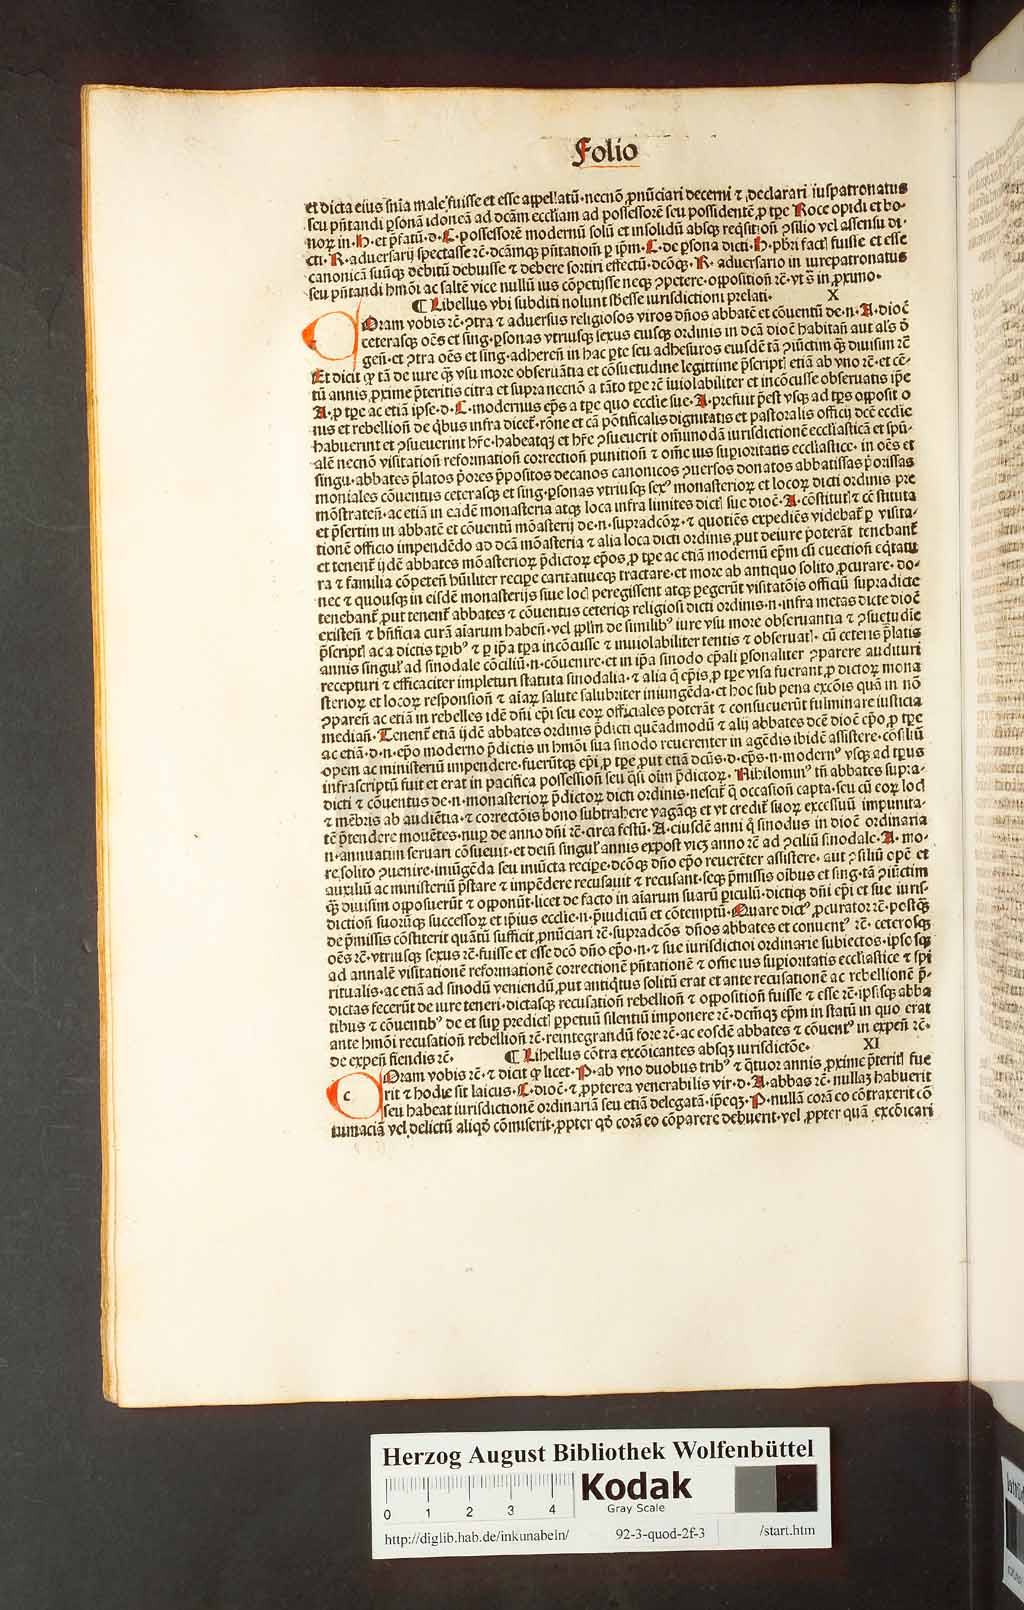 Folio
et dicta eius sñia male fuisse et esse appellatũ·necnõ ꝓnũciari decerni ⁊ declarari iuspatronatus
seu pñtandi ꝑsonã idoneã ad dcãm eccliam ad possessorẽ seu possidentẽ ꝓ tꝑe Roce opidi et bo-
noꝝ in·H·et p̃fatũ·d·C·possessorẽ modernũ solũ et insolidũ absqꝫ reqsitioñ ꝯsilio vel assensu di-
cti·R·aduersarij spectasse rẽ·dcãmqꝫ pñtationẽ ꝑ ip̃m·C·de ꝑsona dicti·H·pbri factã fuisse et esse
canonicã suũqꝫ debitũ debuisse ⁊ debere sortiri effectũ·dcõqꝫ·R·aduersario in iurepatronatus
seu pñtandi hmõi ac saltẽ vice nullũ ius cõpetijsse neqꝫ ꝯpetere·oppositioñ rẽ·vt s̃ in ꝓximo·
¶ Libellus vbi subditi nolunt sbesse iurisdictioni prelati· X
Coram vobis rẽ·ꝯtra ⁊ aduersus religiosos viros dños abbatẽ et cõuentũ de·n·A·dioc̃
ceterasqꝫ oẽs et sing·ꝑsonas vtriusqꝫ sexus eiusqꝫ ordinis in dcã dioc̃ habitañ aut al's õ
geñ·et ꝯtra oẽs et sing·adhereñ in hac ꝑte seu adhesuros eiusdẽ tã ꝯiũctim qꝫ diuisim rẽ
Et dicit ꝙ tã de iure qꝫ vsu more obseruãtia et cõsuetudine legittime p̃scriptĩ etiã ab vno rẽ·et cẽ-
tũ annis ꝓxime p̃teritis citra et supra necnõ a tãto tꝑe rẽ iuiolabiliter et incõcusse obseruatis ip̃e
A·ꝓ tꝑe ac etiã ipse·d·C·modernus ep̃s a tꝑe quo ecclie sue·A·prefuit p̃est vsqꝫ ad tp̃s opposit o
nis et rebellioñ de qbus infra dicet̃·rõne et cã põtificalis dignitatis et pastoralis officij dcẽ ecclie
habuerint et ꝯsueuerint hr̃e·habeatqꝫ et hr̃e ꝯsueuerit om̃imodã iurisdictionẽ ecclĩasticã et spũ-
alẽ necnõ visitatioñ reformatioñ correctioñ punitioñ ⁊ om̃e ius suꝑioritatis ecclĩastice·in oẽs et
singu·abbates p̃latos p̃ores p̃positos decanos canonicos ꝯuersos donatos abbatissas p̃orissas
moniales cõuentus ceterasqꝫ et sing·ꝑsonas vtriusqꝫ sexꝰ monasterioꝝ et locoꝝ dicti ordinis pre
mõstrateñ·ac etiã in eadẽ monasteria atqꝫ loca infra limites dictĩ sue dioc̃·A·cõstitutĩ ⁊ cẽ stituta
et p̃sertim in abbatẽ et cõuentũ mõasterij de·n·supradcõꝝ·⁊ quotiẽs expediẽs videbat̃ ꝑ visita-
tionẽ officio impendẽdo ad dcã mõasteria ⁊ alia loca dicti ordinis ꝓut deiure poterãt tenebant̃
et tenent̃ ijdẽ abbates mõasterioꝝ p̃dictoꝝ ep̃os ꝓ tꝑe ac etiã modernũ ep̃m cũ euectioñ cq̃tatu
ra ⁊ familia cõpeteñ hũiliter recipe caritatiueqꝫ tractare·et more ab antiquo solito ꝓcurare·do-
nec ⁊ quousqꝫ in eisdẽ monasterijs siue locĩ peregissent atqꝫ ꝑegerũt visitatõis officiũ supradicte
tenebant̃ ꝓut tenent̃ abbates ⁊ cõuentus ceteriqꝫ religiosi dicti ordinis·n·infra metas dicte dioc̃
existeñ ⁊ bñficia curã aĩarum habeñ·vel sp̃lim de similibꝰ iure vsu more obseruantia ⁊ ꝯsuetudie
p̃scriptĩ ac a dictis tp̃ibꝰ ⁊ ꝑ ip̃a tp̃a incõcusse ⁊ inuiolabiliter tentis ⁊ obseruatĩ·cũ ceteris p̃latis
annis singul' ad sinodale cõciliũ·n·cõuenire·et in ip̃a sinodo ep̃ali ꝑsonaliter ꝯparere audituri
recepturi ⁊ efficaciter impleturi statuta sinodalia·⁊ alia q̃ ep̃is ꝓ tꝑe visa fuerant ꝓ dictoꝝ mona
sterioꝝ et locoꝝ responsioñ ⁊ aĩaꝝ salute salubriter iniungẽda·et hoc sub pena excõis quã in nõ
ꝯpareñ ac etiã in rebelles idẽ dñi ep̃i seu eoꝝ officiales poterãt ⁊ consueuerũt fulminare iusticia
mediañ·Tenent̃ etiã ijdẽ abbates ordinis p̃dicti queẽadmodũ ⁊ alij abbates dcẽ dioc̃ ep̃o ꝓ tꝑe
ac etiã·d·n·ep̃o moderno p̃dictis in hmõi sua sinodo reuerenter in agẽdis ibidẽ assistere·cõsiliũ
opem ac ministeriũ impendere·fuerũtqꝫ ep̃i ꝓ tꝑe ꝓut etiã dcũs·d·ep̃s·n·modernꝰ vsqꝫ ad tp̃us
infrascriptũ fuit et erat in pacifica possessioñ seu q̃si oĩm p̃dictoꝝ·Nihilominꝰ tñ abbates supra-
dicti ⁊ cõuentus de·n·monasterioꝝ p̃dictoꝝ dicti ordinis·nescit̃ q̃ occasioñ capta·seu cũ eoꝝ locĩ
⁊ mẽbris ab audiẽtia·⁊ correctõis bono subtrahere vagãqꝫ et vt credit̃ suoꝝ excessuũ impunita-
tẽ p̃tendere mouẽtes·nuꝑ de anno dñi rẽ·circa festũ·A·eiusdẽ anni q̃ sinodus in dioc̃ ordinaria
n·annuatim seruari cõsueuit·et deiñ singul' annis expost vicꝫ anno rẽ ad ꝯciliũ sinodale·A·mo-
re solito ꝯuenire·iniũgẽda seu iniũcta recipe·dcõqꝫ dño ep̃o reuerẽter assistere·aut ꝯsiliũ opẽ et
auxiliũ ac ministeriũ p̃stare ⁊ impẽdere recusauit ⁊ recusant·seqꝫ p̃missis oĩbus et sing·tã ꝯiũctim
qꝫ diuisim opposuerũt ⁊ opponũt·licet de facto in aĩarum suarũ ꝑiculũ·dictiqꝫ dñi ep̃i et sue iuris-
dictioñ suorũqꝫ successoꝝ et ip̃ius ecclie·n·p̃iudiciũ et cõtemptũ·Quare dictꝰ ꝓcurator rẽ·pestqꝫ
de p̃missis cõstiterit quãtũ sufficit ꝓnũciari rẽ·supradcõs dños abbates et conuentꝰ rẽ·ceterosqꝫ
oẽs rẽ·vtriusqꝫ sexus rẽ·fuisse et esse dcõ dño ep̃o·n·⁊ sue iurisdictioi ordinarie subiectos·ipsosqꝫ
ad annalẽ visitationẽ reformationẽ correctionẽ pñtationẽ ⁊ om̃e ius suꝑioritatis ecclĩastice ⁊ spi
ritualis·ac etiã ad sinodũ veniendũ ꝓut antiqtus solitũ erat et ante recusationẽ ac rebellionẽ p̃-
dictas fecerũt de iure teneri·dictasqꝫ recusatioñ rebellioñ ⁊ oppositioñ fuisse ⁊ esse rẽ·ip̃sisqꝫ abba
tibus ⁊ cõuentibꝰ de et suꝑ predictĩ ꝑpetuũ silentiũ imponere rẽ·dcm̃qꝫ ep̃m in statũ in quo erat
ante hmõi recusatioñ rebellioñ rẽ·reintegrandũ fore rẽ·ac eosdẽ abbates ⁊ cõuentꝰ in expeñ rẽ·
de expeñ fiendis rẽ· ¶ Libellus cõtra excõicantes absqꝫ iurisdictõe· XI
Coram vobis rẽ·⁊ dicit ꝙ licet·P·ab vno duobus tribꝰ ⁊ q̃tuor annis ꝓxime p̃teritĩ fue
rit ⁊ hodie sit laicus·C·dioc̃·⁊ ꝓpterea venerabilis vir·d·A·abbas rẽ·nullaꝫ habuerit
seu habeat iurisdictionẽ ordinariã seu etiã delegatã·ip̃eqꝫ·P·nullã corã eo cõtraxerit cõ
tumaciã vel delictũ aliqd̃ cõmiserit·ꝓpter qd̃ corã eo cõparere debuerit·vel ꝓpter quã excõicari
Herzog August Bibliothek Wolfenbüttel
0 1 2 3 4
Kodak
Gray Scale
http://diglib.hab.de/inkunabeln/ 92-3-quod-2f-3 /start.htm